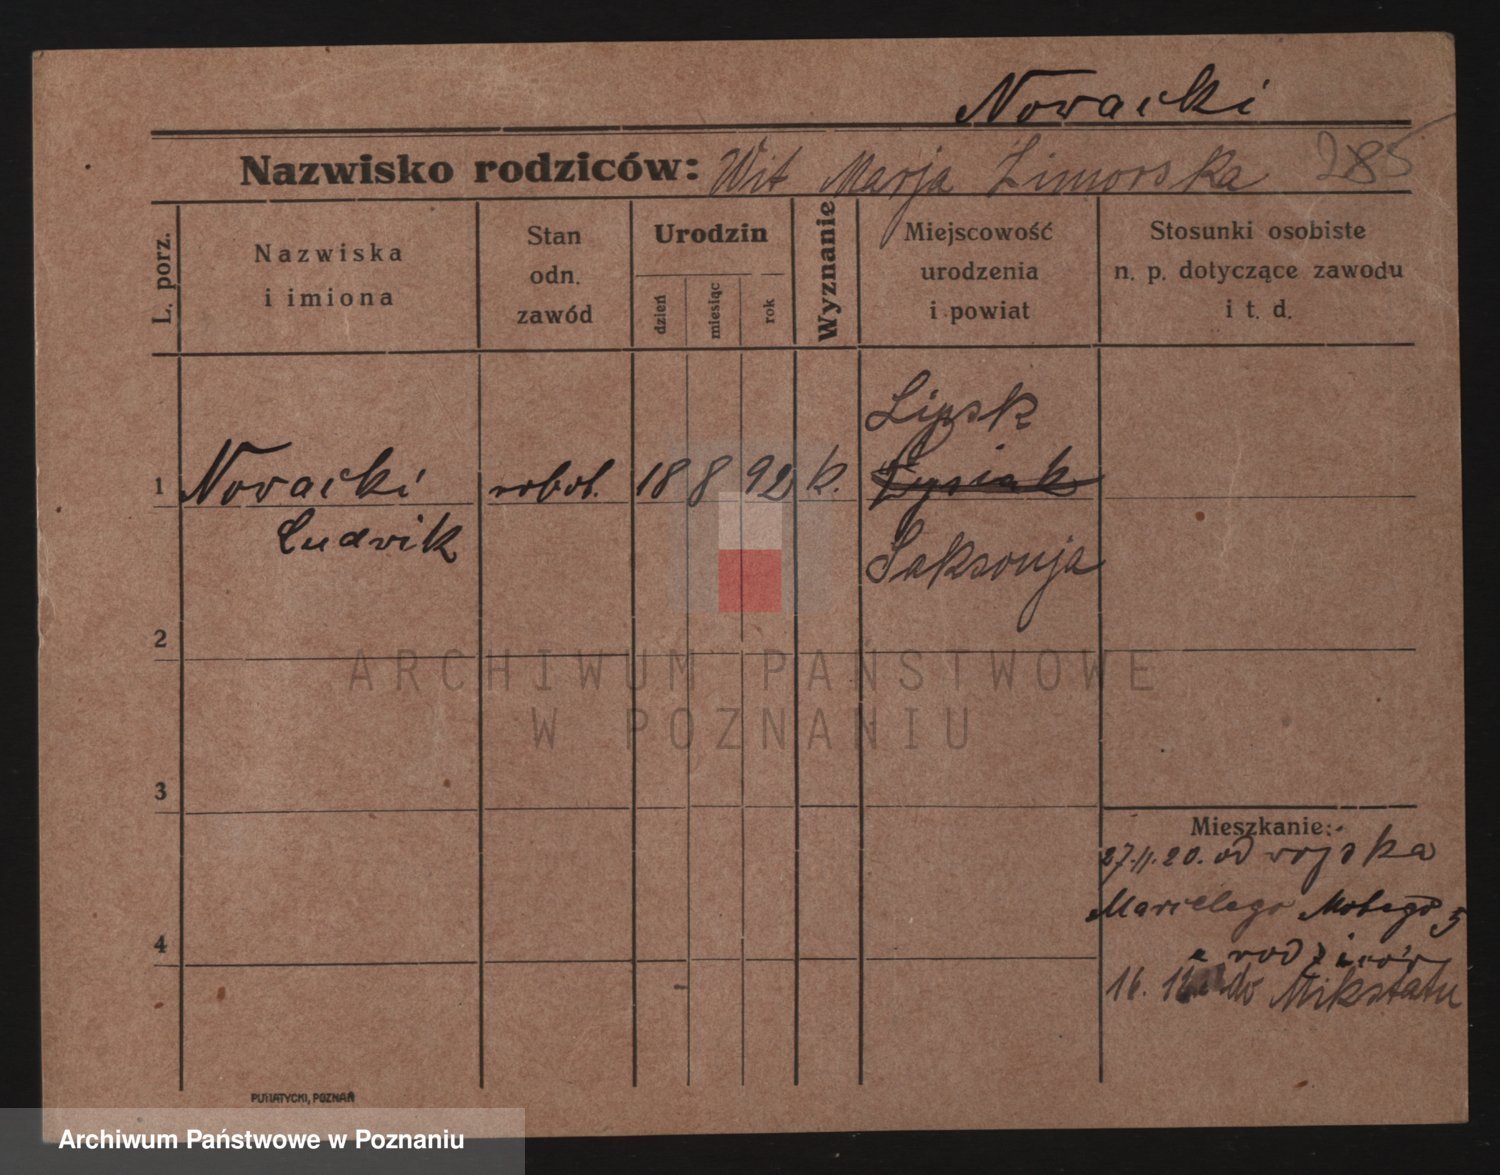 Nowacki
Nazwisko rodziców: Wit Marja Zimorska 285
L. porz.
Nazwiska
i imiona
Stan
odn.
zawód
Urodzin
dzień
miesiąc
rok
Wyznanie
Miejscowość
urodzenia
i powiat
Stosunki osobiste
n. p. dotyczące zawodu
i t. d.
Lipsk
1 Nowacki robot. 18 8 92 k. Lysiak
Ludwik
Saksonja
2
ARCHIWUM PAŃSTWOWE
W POZNANIU
3
Mieszkanie:
27.11.20. od wojska
Marcelego Motego 5
u rodziców
4
16. do Mikstatu
PUTIATYCKI, POZNAŃ
Archiwum Państwowe w Poznaniu